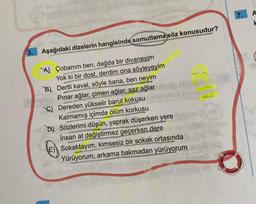 7. A
5. Aşağıdaki dizelerin hangisinde somutlama söz konusudur?
A) Çobanım ben, dağda bir divaneyim
Yok ki bir dost, derdim ona söyleyeyim
B) Dertli kaval, söyle bana, ben neyim
Pınar ağlar, çimen ağlar, saz ağlar
C) Dereden yükselir barut kokusu
Kalmamış içimde ölüm korkusu
D) Sözlerimi düşün, yaprak düşerken yere
İnsan at değiştirmez geçerken dere
E) Sokaktayım, kimsesiz bir sokak ortasında
Yürüyorum, arkama bakmadan yürüyorum